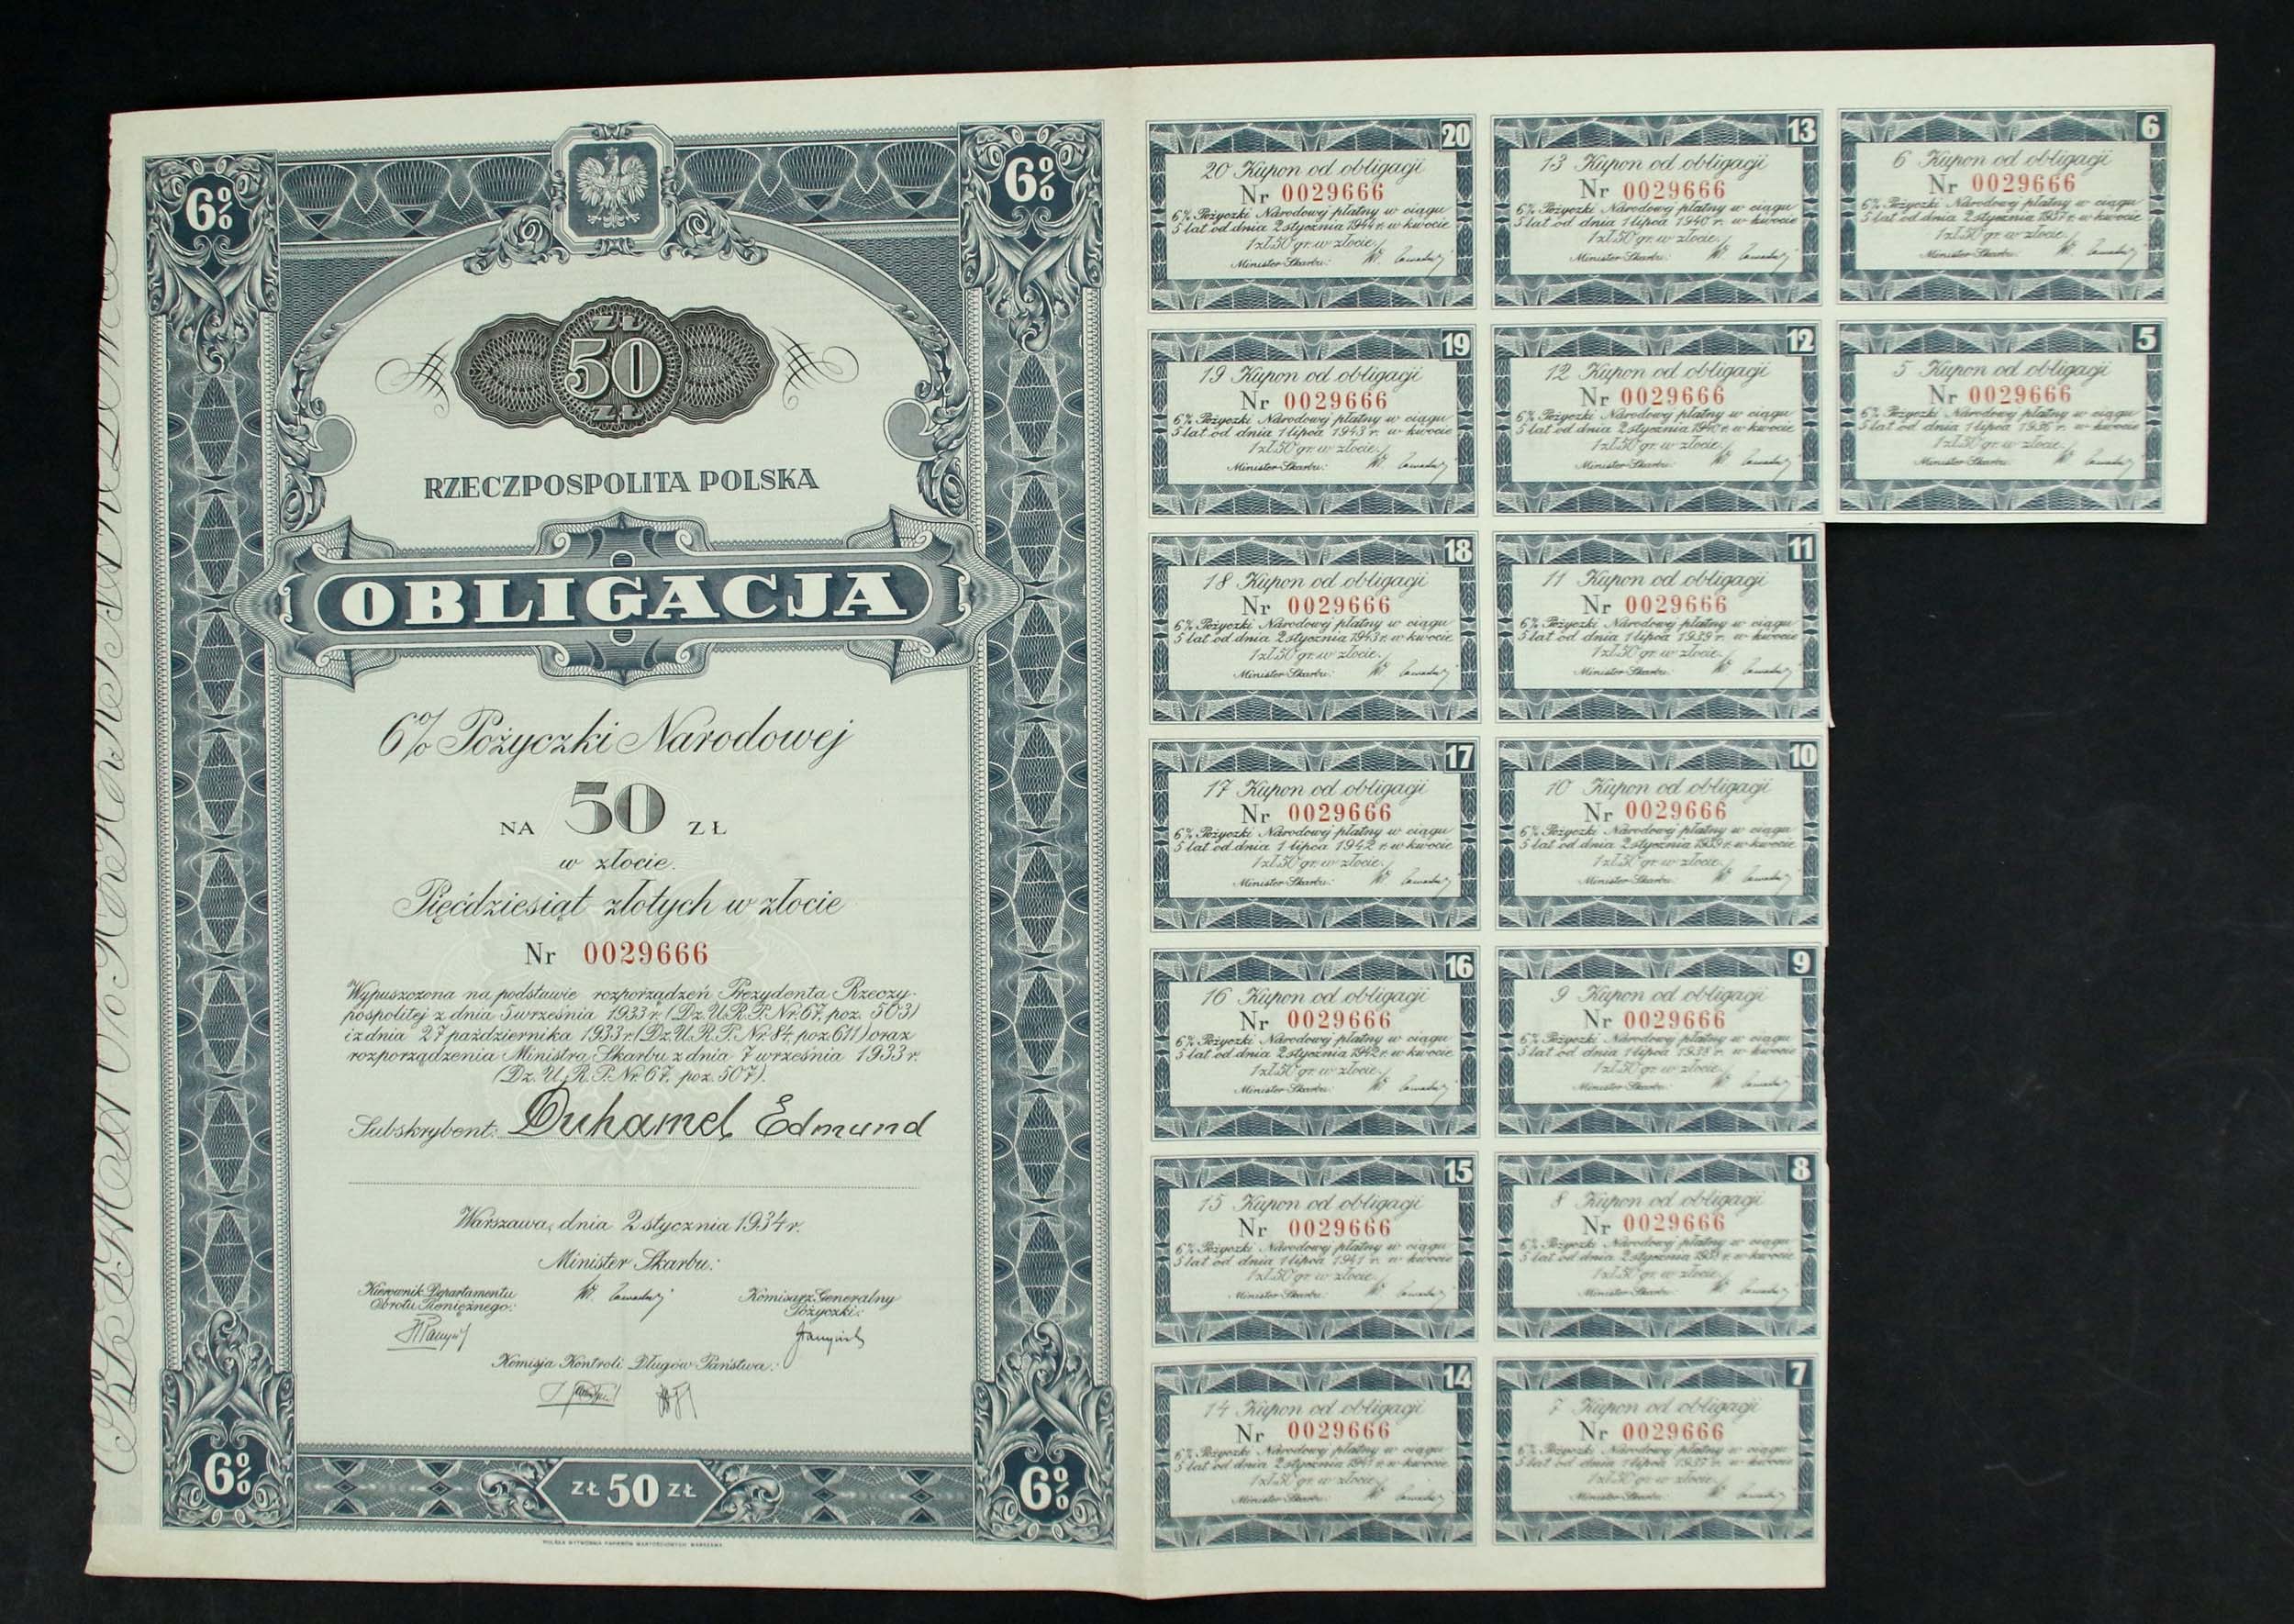 6%
6%
ZŁ
50
ZŁ
RZECZPOSPOLITA POLSKA
OBLIGACJA
6% Pożyczki Narodowej
NA 50 ZŁ
w złocie.
Pięćdziesiąt złotych w złocie
Nr 0029666
Wypuszczona na podstawie rozporządzeń Prezydenta Rzeczy-
pospolitej z dnia 5 września 1933 r. (Dz. U. R. P. Nr. 67, poz. 503)
i z dnia 27 października 1933 r. (Dz. U. R. P. Nr. 84, poz. 611) oraz
rozporządzenia Ministra Skarbu z dnia 7 września 1933 r.
(Dz. U. R. P. Nr. 67, poz. 507).
Subskrybent: Duhamel Edmund
Warszawa, dnia 2 stycznia 1934 r.
Minister Skarbu:
Kierownik Departamentu
Obrotu Pieniężnego:
Komisarz Generalny
Pożyczki:
Komisja Kontroli Długów Państwa:
6%
ZŁ 50 ZŁ
6%
POLSKA WYTWÓRNIA PAPIERÓW WARTOŚCIOWYCH WARSZAWA
20
20 Kupon od obligacji
Nr 0029666
6% Pożyczki Narodowej płatny w ciągu
5 lat od dnia 2 stycznia 1944 r. w kwocie
1 zł. 50 gr. w złocie.
Minister Skarbu:
19
19 Kupon od obligacji
Nr 0029666
6% Pożyczki Narodowej płatny w ciągu
5 lat od dnia 1 lipca 1943 r. w kwocie
1 zł. 50 gr. w złocie.
Minister Skarbu:
18
18 Kupon od obligacji
Nr 0029666
6% Pożyczki Narodowej płatny w ciągu
5 lat od dnia 2 stycznia 1943 r. w kwocie
1 zł. 50 gr. w złocie.
Minister Skarbu:
17
17 Kupon od obligacji
Nr 0029666
6% Pożyczki Narodowej płatny w ciągu
5 lat od dnia 1 lipca 1942 r. w kwocie
1 zł. 50 gr. w złocie.
Minister Skarbu:
16
16 Kupon od obligacji
Nr 0029666
6% Pożyczki Narodowej płatny w ciągu
5 lat od dnia 2 stycznia 1942 r. w kwocie
1 zł. 50 gr. w złocie.
Minister Skarbu:
15
15 Kupon od obligacji
Nr 0029666
6% Pożyczki Narodowej płatny w ciągu
5 lat od dnia 1 lipca 1941 r. w kwocie
1 zł. 50 gr. w złocie.
Minister Skarbu:
14
14 Kupon od obligacji
Nr 0029666
6% Pożyczki Narodowej płatny w ciągu
5 lat od dnia 2 stycznia 1941 r. w kwocie
1 zł. 50 gr. w złocie.
Minister Skarbu:
13
13 Kupon od obligacji
Nr 0029666
6% Pożyczki Narodowej płatny w ciągu
5 lat od dnia 1 lipca 1940 r. w kwocie
1 zł. 50 gr. w złocie.
Minister Skarbu:
12
12 Kupon od obligacji
Nr 0029666
6% Pożyczki Narodowej płatny w ciągu
5 lat od dnia 2 stycznia 1940 r. w kwocie
1 zł. 50 gr. w złocie.
Minister Skarbu:
11
11 Kupon od obligacji
Nr 0029666
6% Pożyczki Narodowej płatny w ciągu
5 lat od dnia 1 lipca 1939 r. w kwocie
1 zł. 50 gr. w złocie.
Minister Skarbu:
10
10 Kupon od obligacji
Nr 0029666
6% Pożyczki Narodowej płatny w ciągu
5 lat od dnia 2 stycznia 1939 r. w kwocie
1 zł. 50 gr. w złocie.
Minister Skarbu:
9
9 Kupon od obligacji
Nr 0029666
6% Pożyczki Narodowej płatny w ciągu
5 lat od dnia 1 lipca 1938 r. w kwocie
1 zł. 50 gr. w złocie.
Minister Skarbu:
8
8 Kupon od obligacji
Nr 0029666
6% Pożyczki Narodowej płatny w ciągu
5 lat od dnia 2 stycznia 1938 r. w kwocie
1 zł. 50 gr. w złocie.
Minister Skarbu:
7
7 Kupon od obligacji
Nr 0029666
6% Pożyczki Narodowej płatny w ciągu
5 lat od dnia 1 lipca 1937 r. w kwocie
1 zł. 50 gr. w złocie.
Minister Skarbu:
6
6 Kupon od obligacji
Nr 0029666
6% Pożyczki Narodowej płatny w ciągu
5 lat od dnia 2 stycznia 1937 r. w kwocie
1 zł. 50 gr. w złocie.
Minister Skarbu:
5
5 Kupon od obligacji
Nr 0029666
6% Pożyczki Narodowej płatny w ciągu
5 lat od dnia 1 lipca 1936 r. w kwocie
1 zł. 50 gr. w złocie.
Minister Skarbu: